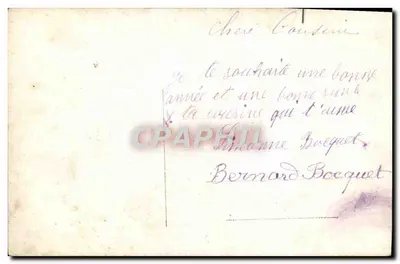 Cheré Cousine
Je te souhaite une bonne
année et une bonne santé
ta cousine qui t'aime
CPAPHIL
Simonne Bocquet.
Bernard Bocquet